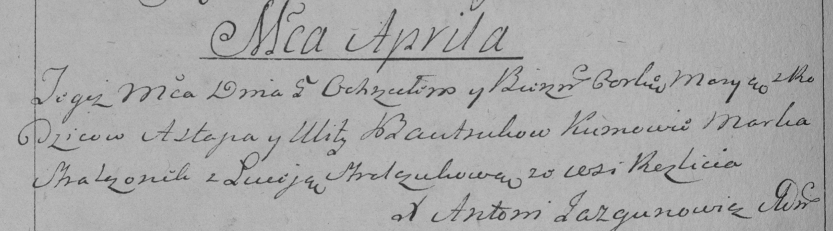 Mca Aprila
Tegoż Mca Dnia 5 Ochrzciłem y Bierzm Corkę Maryę z Ro
Dzicow Astapa y Ulity Bautrukow Kumowie Marka
Stralzonik z Łucyją Stralzukową ze wsi Rezlicia
X Antoni Jazgunowicz